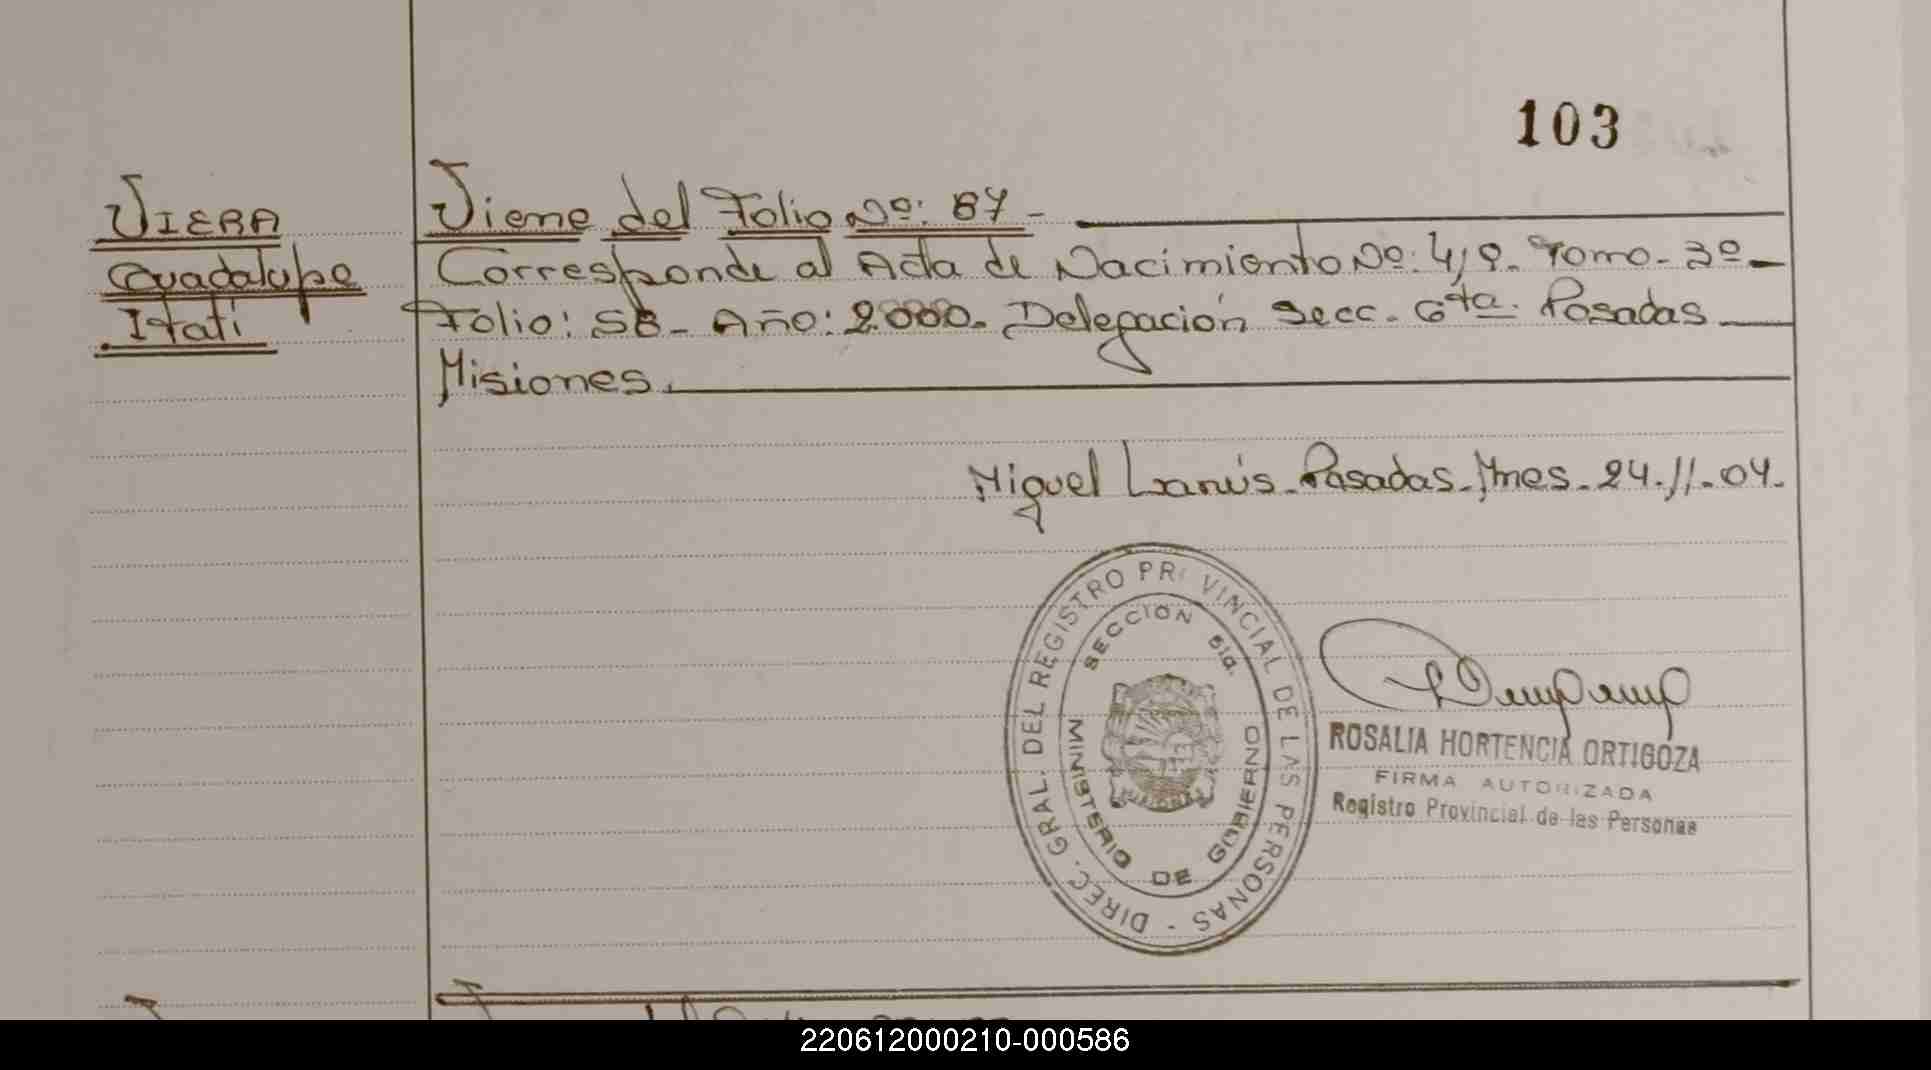 103
VIERA
Guadalupe
Itatí
Viene del Folio Nº: 87-
Corresponde al Acta de Nacimiento Nº: 419. Tomo- 3º-
Folio: 58- Año: 2000. Delegación Secc. 6ta. Posadas
Misiones.
Miguel Lanús-Posadas-Mnes-24.11.04.
DIREC. GRAL. DEL REGISTRO PR VINCIAL DE LAS PERSONAS -
SECCION 6ta.
MINISTERIO DE GOBIERNO
ROSALIA HORTENCIA ORTIGOZA
FIRMA AUTORIZADA
Registro Provincial de las Personas
220612000210-000586